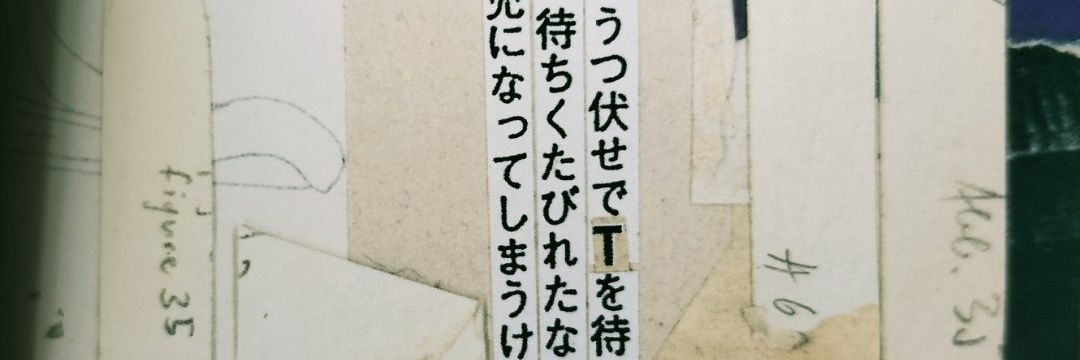 うつ伏せでTを待
待ちくたびれたな
になってしまうけ
figure 35